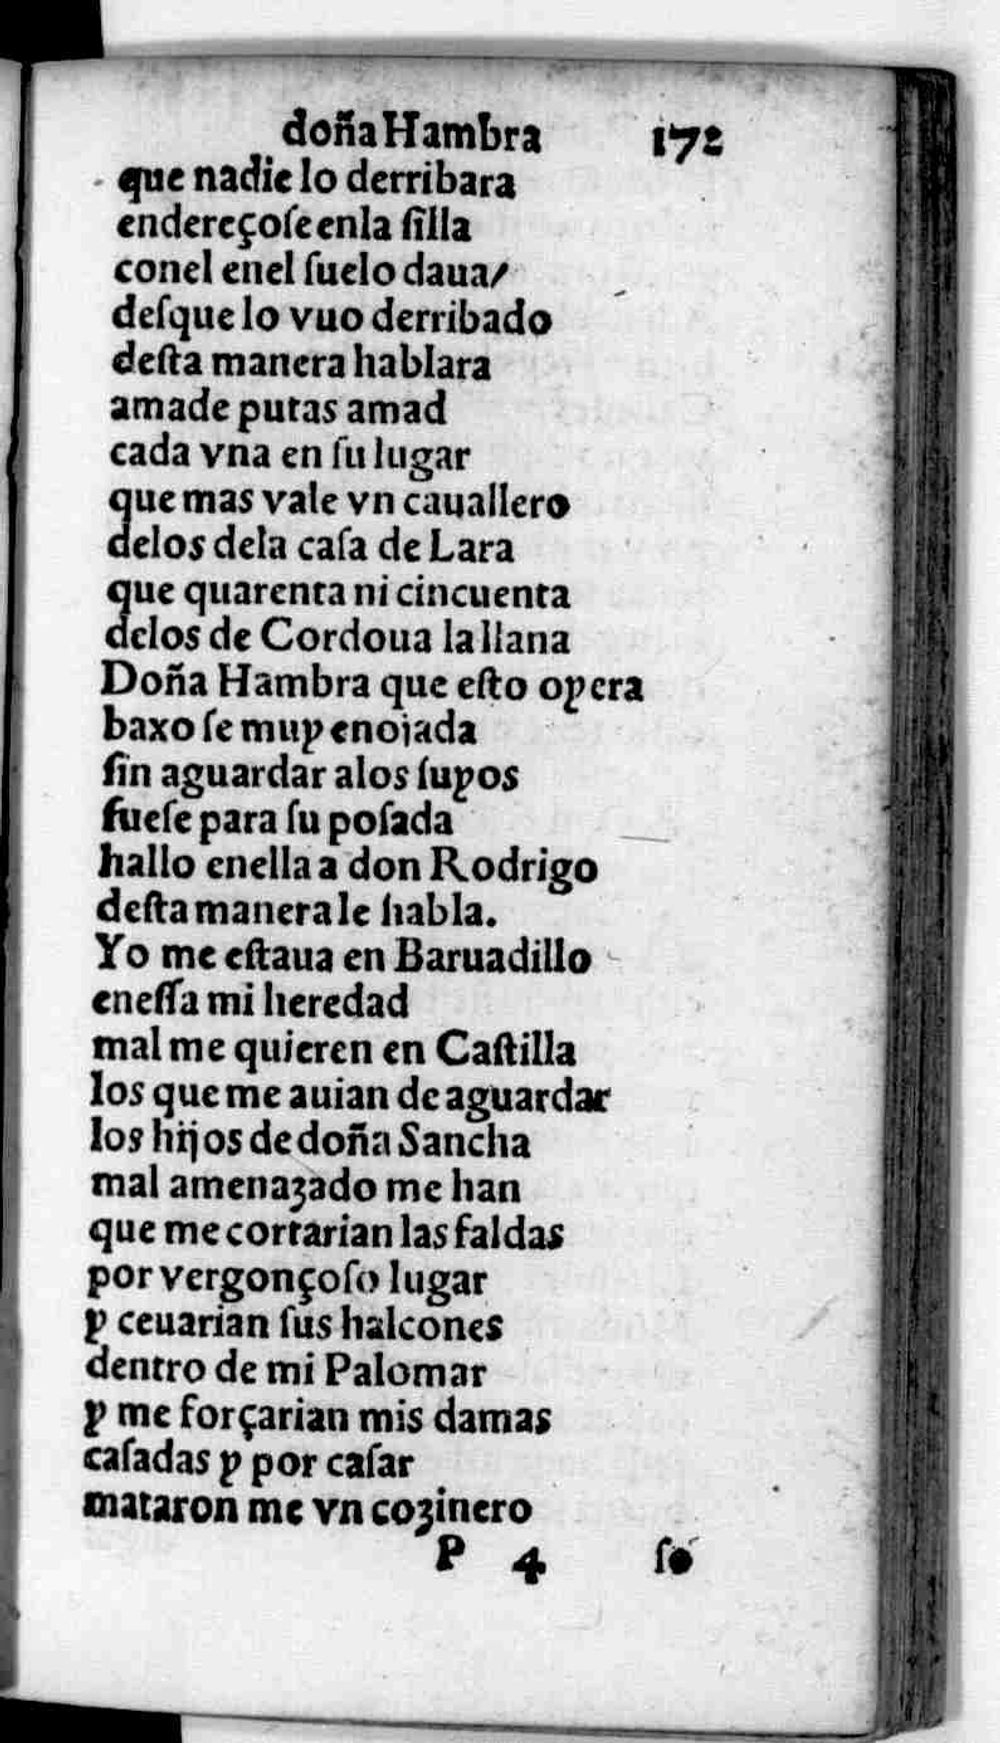 doña Hambra 172
que nadie lo derribara
endereçoſe enla ſilla
conel enel ſuelo daua/
deſque lo vuo derribado
deſta manera hablara
amade putas amad
cada vna en ſu lugar
que mas vale vn cauallero
delos dela caſa de Lara
que quarenta ni cincuenta
delos de Cordoua la llana
Doña Hambra que eſto oyera
baxo ſe muy enojada
ſin aguardar alos ſuyos
fueſe para ſu poſada
hallo enella a don Rodrigo
deſta manera le habla.
Yo me eſtaua en Baruadillo
eneſſa mi heredad
mal me quieren en Caſtilla
los que me auian de aguardar
los hijos de doña Sancha
mal amenazado me han
que me cortarian las faldas
por vergonçoſo lugar
y ceuarian ſus halcones
dentro de mi Palomar
y me forçarian mis damas
caſadas y por caſar
mataron me vn cozinero
P 4 ſo